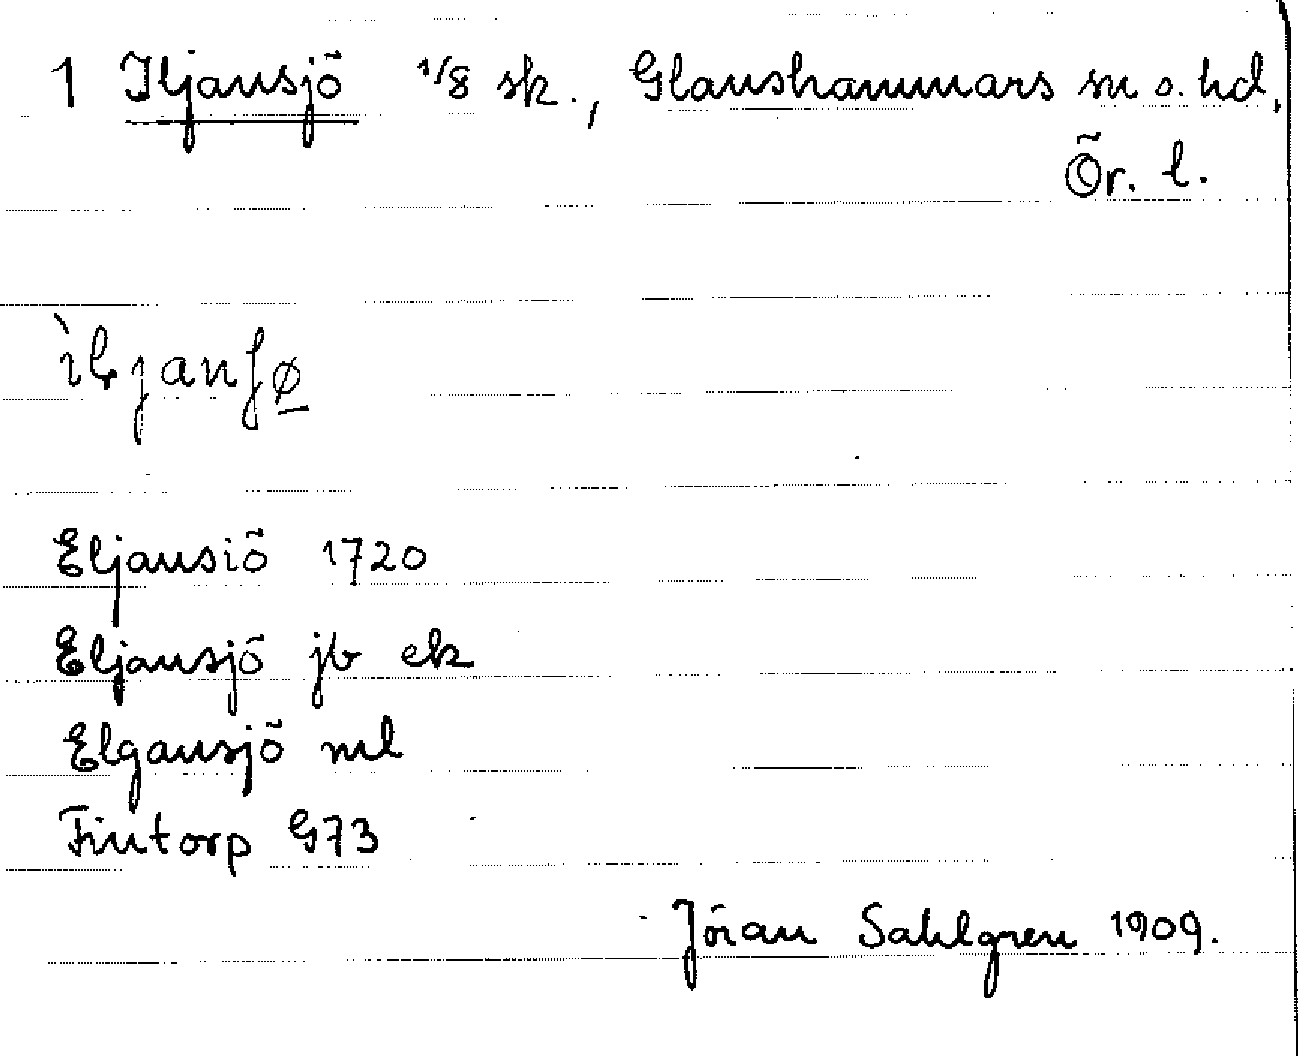 1 Iljansjö 1/8 sk., Glanshammars sn o. hd,
Ör. l.
Eljansiö 1720
Eljansjö jb ek
Elgansjö ml
Fintorp G73
Jöran Sahlgren 1909.